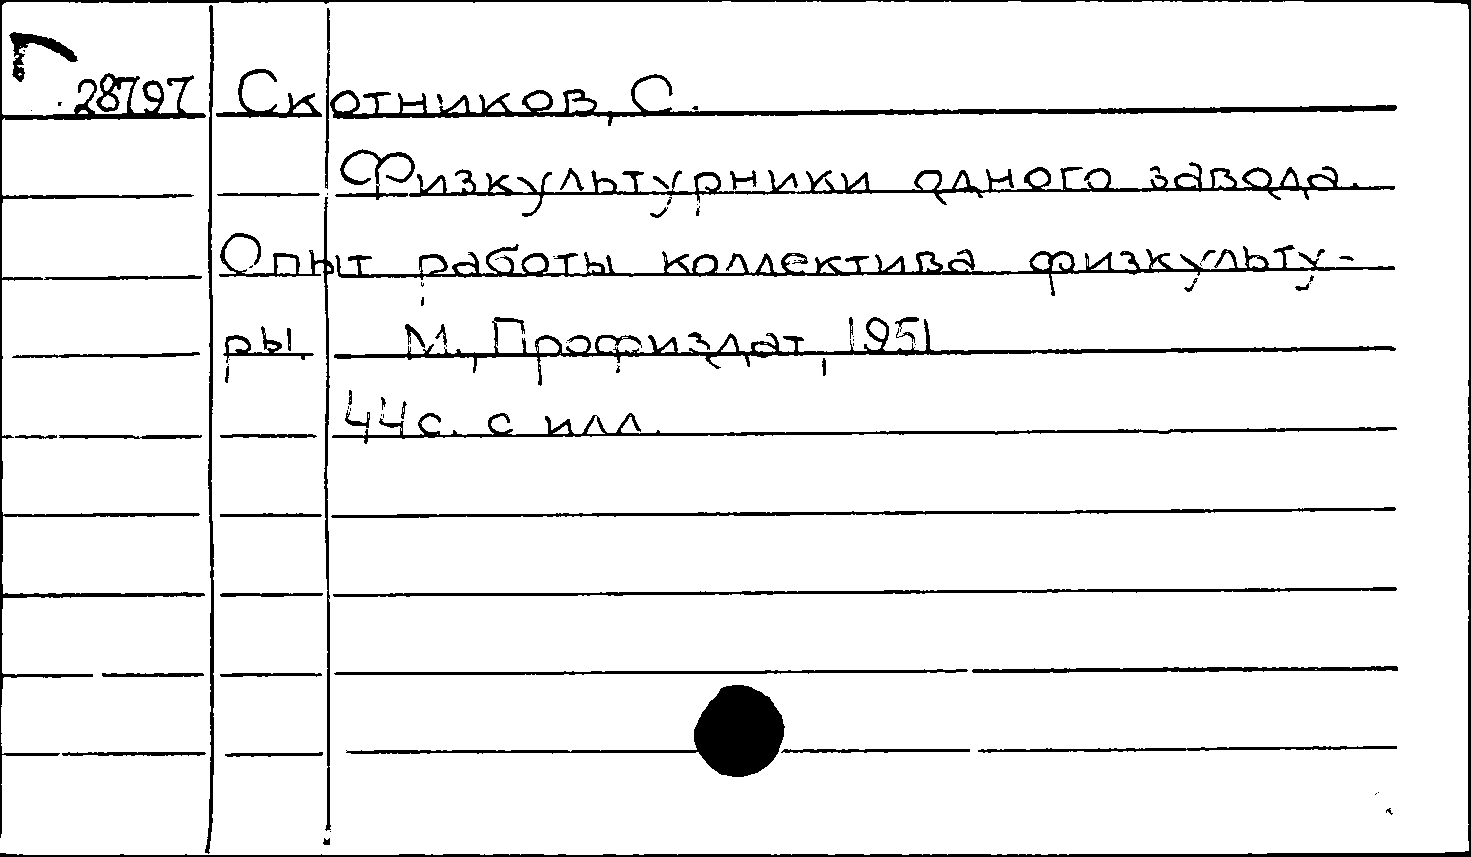 Г 28797 Скотников, С.
Физкультурники одного завода.
Опыт работы коллектива физкульту-
ры. М., Профиздат, 1951
44с. с илл.